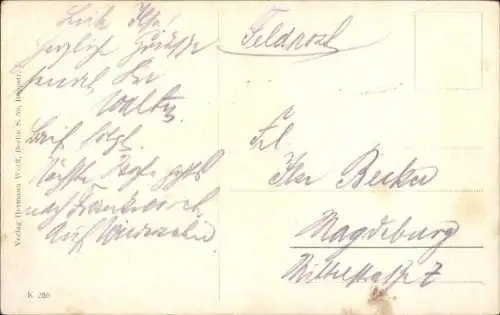 Liebe Ilse!
Herzliche Grüsse
sendet Dir
Walter.
Brief folgt.
Nächste Woche geht's
nach Frankreich.
Auf Wiedersehn
Feldpost
Frl.
Ilse Becker
Magdeburg
Mittelstraße 7
Verlag Hermann Wolff, Berlin S.
K 286